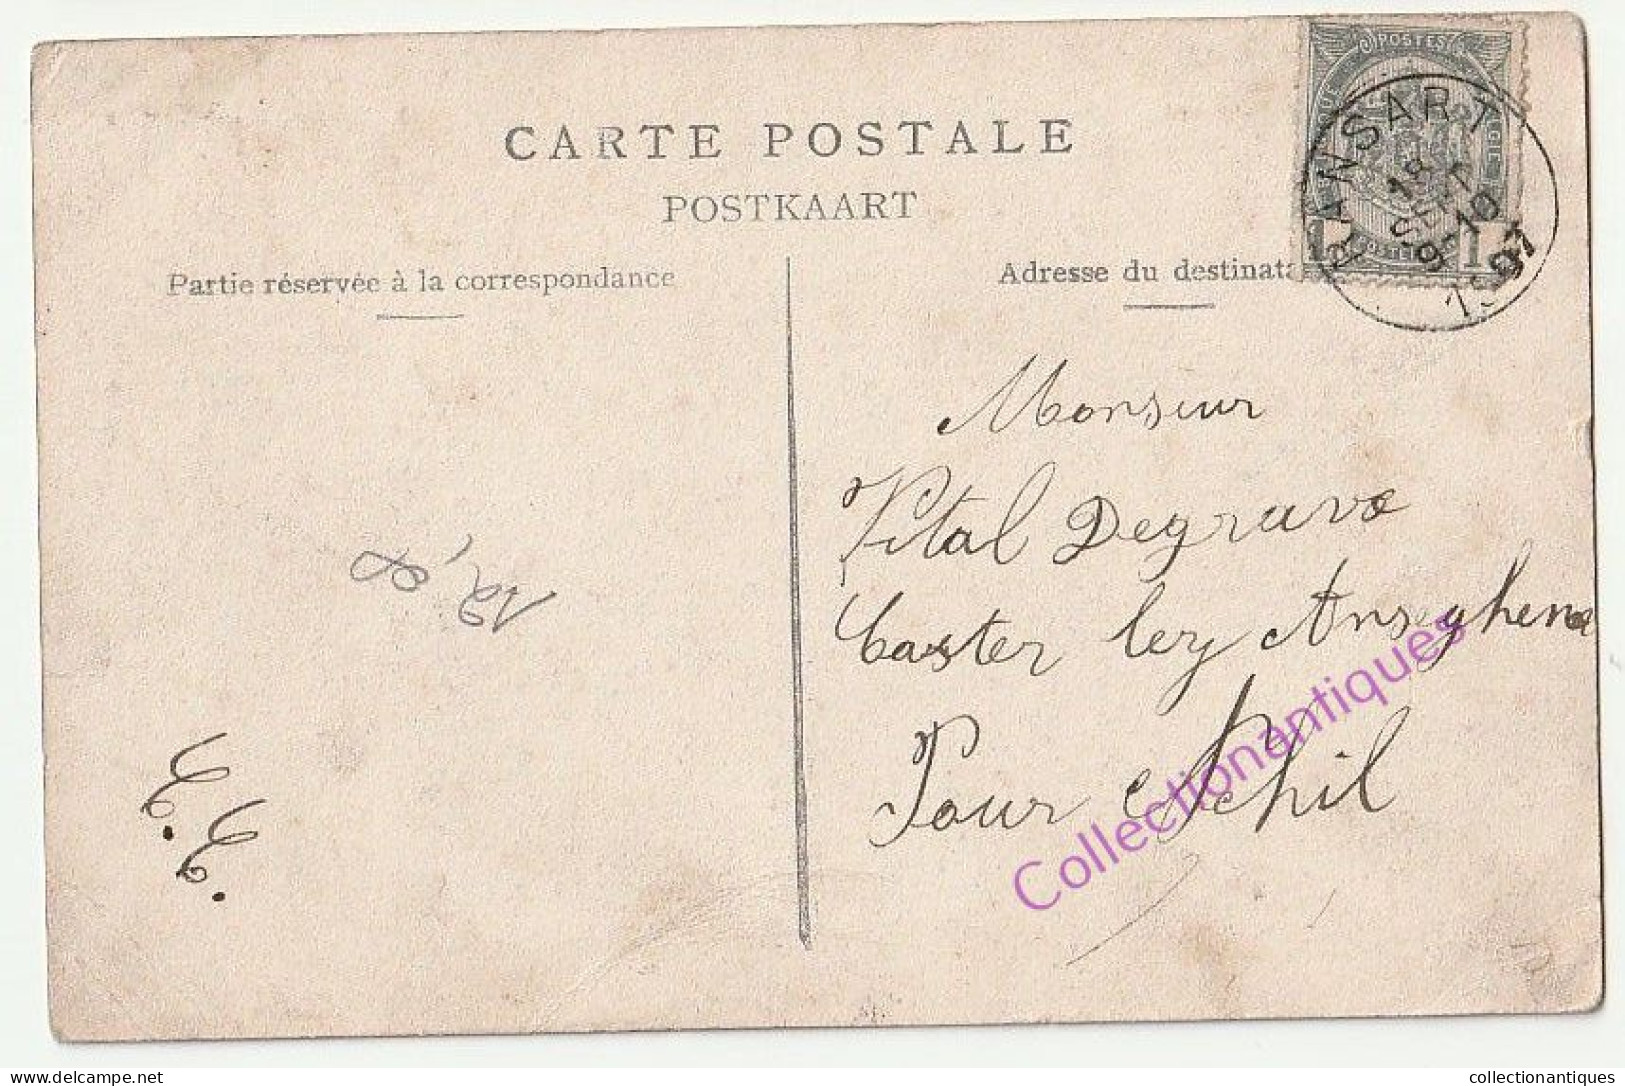 CARTE POSTALE
POSTKAART
Partie réservée à la correspondance
Adresse du destinata
POSTES
RANSART
18 SEPT
9-10
1907
1
Monsieur
Vital Degrave
Caster ley Anseghene
Pour Achil
Collectionantiques
delcampe.net
collectionantiques